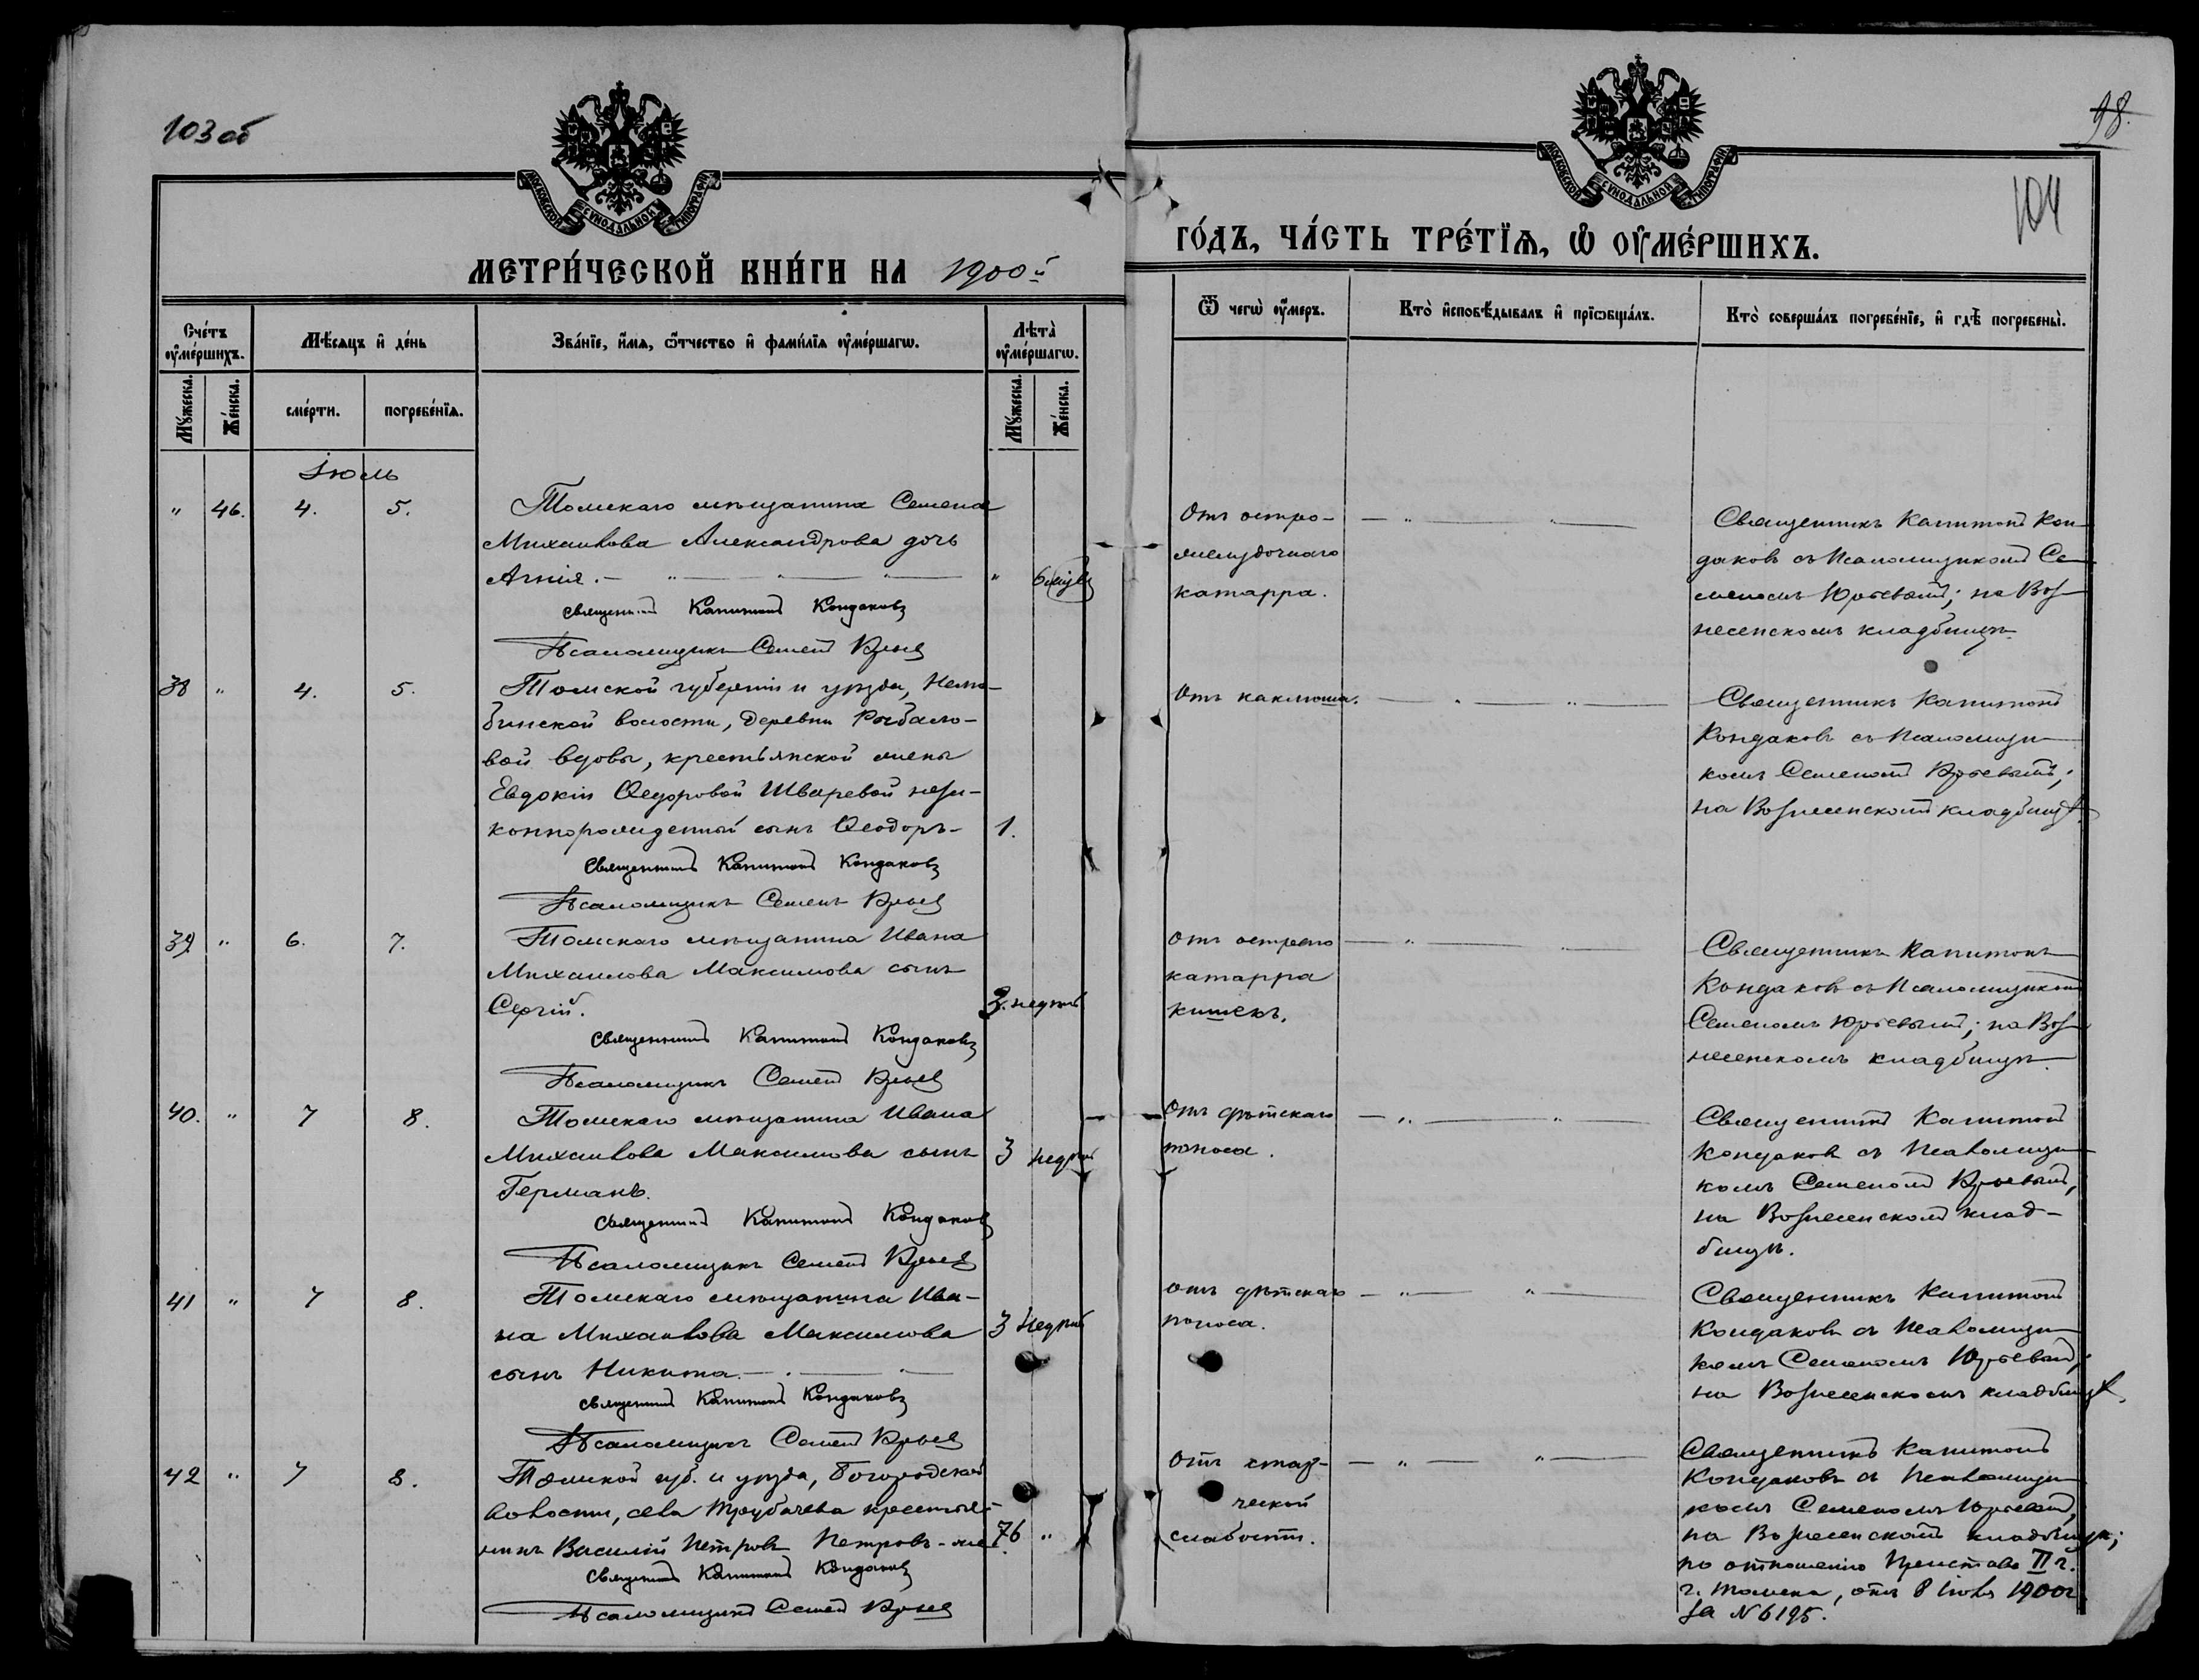 103 об
98.
104
МОСКОВСКОЙ СѴНОДАЛЬНОЙ ТИПОГРАФІИ
МОСКОВСКОЙ СѴНОДАЛЬНОЙ ТИПОГРАФІИ
МЕТРИ́ЧЕСКОЙ КНИ́ГИ НА 1900й
ГО́ДЪ, ЧА́СТЬ ТРЕ́ТЇѦ, Ѡ҆ ОУ҆МЕ́РШИХЪ.
Сче́тъ оу҆ме́ршихъ.
Мѣ́сяцъ и҆ де́нь
Зва́нїе, и҆́мѧ, ѻ҆́тчество и҆ фами́лїѧ оу҆ме́ршагѡ.
Лѣта̀ оу҆ме́ршагѡ.
Ѿ чегѡ̀ оу҆́меръ.
Кто̀ и҆сповѣ́дывалъ и҆ прїѡбща́лъ.
Кто̀ соверша́лъ погребе́нїе, и҆ гдѣ̀ погребены̀.
Мꙋ́жеска.
Же́нска.
сме́рти.
погребе́нїѧ.
Мꙋ́жеска.
Же́нска.
Іюль
" 46. 4. 5.
Томскаго мѣщанина Семена
Михаилова Александрова дочь
Агнія. — " — " — " —
" 6 мѣся
Священникъ Капитонъ Кондаковъ
Псаломщикъ Семенъ Юрьев
Отъ остро-
желудочнаго
катарра.
Священникъ Капитонъ Кон-
даковъ съ Псаломщикомъ Се-
меномъ Юрьевымъ; на Воз-
несенскомъ кладбищѣ.
38 " 4. 5.
Томской губерніи и уѣзда, Нелю-
бинской волости, деревни Рыбало-
вой вдовы, крестьянской жены
Евдокіи Ѳедоровой Шваревой неза-
коннорожденный сынъ Ѳеодоръ-
1.
Священникъ Капитонъ Кондаковъ
Псаломщикъ Семенъ Юрьев
Отъ каклюша.
Священникъ Капитонъ
Кондаковъ съ Псаломщи-
комъ Семеномъ Юрьевымъ;
на Вознесенскомъ кладбищѣ.
39 " 6. 7.
Томскаго мѣщанина Ивана
Михаилова Максимова сынъ
Сергій.
3. недѣли
Священникъ Капитонъ Кондаковъ
Псаломщикъ Семенъ Юрьев
Отъ остраго
катарра
кишекъ.
Священникъ Капитонъ
Кондаковъ съ Псаломщикомъ
Семеномъ Юрьевымъ; на Воз-
несенскомъ кладбищѣ.
40. " 7 8.
Томскаго мѣщанина Ивана
Михаилова Максимова сынъ
Германъ.
3 недѣли
Священникъ Капитонъ Кондаковъ
Псаломщикъ Семенъ Юрьев
Отъ дѣтскаго
поноса.
Священникъ Капитонъ
Кондаковъ съ Псаломщи-
комъ Семеномъ Юрьевымъ,
на Вознесенскомъ клад-
бищѣ.
41 " 7 8.
Томскаго мѣщанина Ива-
на Михаилова Максимова
сынъ Никита.
3 недѣли
Священникъ Капитонъ Кондаковъ
Псаломщикъ Семенъ Юрьев
Отъ дѣтскаго
поноса.
Священникъ Капитонъ
Кондаковъ съ Псаломщи-
комъ Семеномъ Юрьевымъ;
на Вознесенскомъ кладбищѣ.
42 " 7 8.
Томской губ. и уѣзда, Богородской
волости, села Трубачева крестья-
нинъ Василій Петровъ Петровъ-же
76 "
Священникъ Капитонъ Кондаковъ
Псаломщикъ Семенъ Юрьев
Отъ стар-
ческой
слабости.
Священникъ Капитонъ
Кондаковъ съ Псаломщи-
комъ Семеномъ Юрьевымъ,
на Вознесенскомъ кладбищѣ;
по отношенію Пристава II ч.
г. Томска, отъ 8 Іюля 1900г
за № 6195.